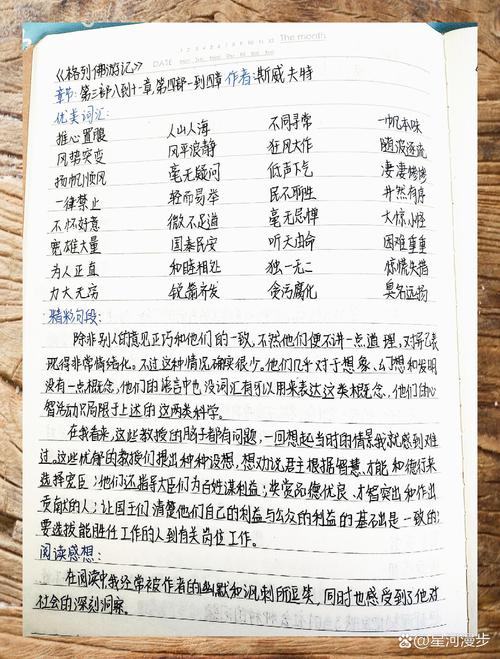 The month
DATE
《格列佛游记》
章节：第三部八到十一章，第四部一到四章 作者：斯威夫特
优美词汇：
推心置腹 人山人海 不同寻常 一帆本味
风势突变 风平浪静 狂风大作 随波逐流
扬帆顺风 毫无疑问 低声下气 凄凄惨惨
一律禁止 轻而易举 民不聊生 井然有序
不怀好意 微不足道 毫无忌惮 大惊小怪
宽雄大量 国泰民安 听天由命 困难重重
为人正直 和睦相处 独一无二 惊慌失措
力大无穷 锐翁齐发 贪污腐化 臭名远扬
精彩句段：
除非别人的意见正巧和他们的一致，不然他们便不讲一点道理，对辩驳表
现得非常情绪化。不过这种情况确实很少。他们几乎对于想象、幻想和发明
没有一点概念，他们的语言中也没词汇有可以用来表达这类概念，他们的心
智活动只局限于上述的这两类科学。
在我看来，这些教授的脑子都有问题，一回想起当时的情景我就感到难
过。这些忧郁的教授们提出种种设想，想劝说君主根据智慧、才能和德行来
选择宠臣；他们还指导大臣们为百姓谋利益；奖赏品德优良、才智突出和作出
贡献的人；让国王们清楚他们自己的利益与公众的利益的基础是一致的；
要选拔能胜任工作的人到有关岗位工作。
阅读感想：
在阅读中，我经常被作者的幽默和讽刺所逗笑，同时也感受到了他对
社会的深刻洞察。
星河漫步